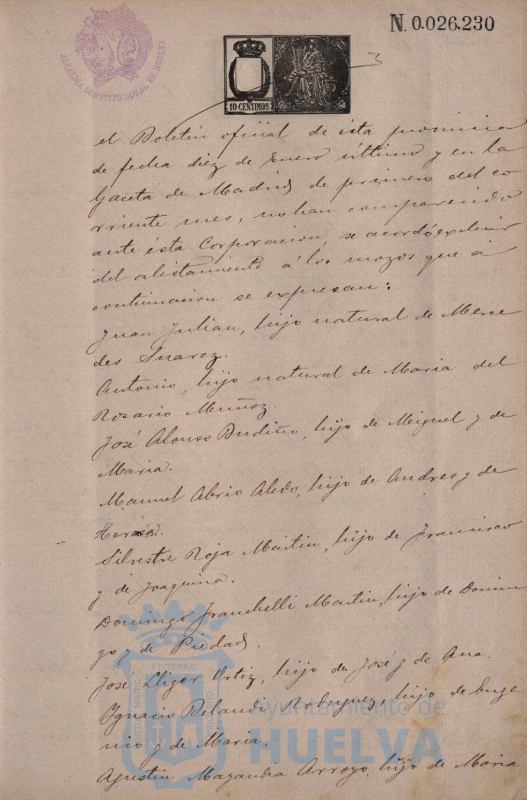 N. 0.026.230
ALCALDIA CONSTITUCIONAL DE HUELVA
10 CENTIMOS
el Boletin oficial de ésta provincia
de fecha diez de Enero último y en la
Gaceta de Madrid de primero del co
rriente mes, no han comparecido
ante ésta Corporacion, se acordó excluir
del alistamiento á los mozos que á
continuacion se expresan:
Juan Julian, hijo natural de Merce
des Suarez.
Antonio, hijo natural de Maria del
Rosario Muñoz.
José Alonso Budiño, hijo de Miguel y de
Maria.
Manuel Abrio Aledo, hijo de Andres y de
Teresa.
Silvestre Roja Martin, hijo de Francisco
y de Joaquina.
Domingo Franchelli Martin, hijo de Domin
go y de Piedad.
José Lliger Ortiz, hijo de José y de Ana.
Ignacio Rodriguez, hijo de Euge
nio y de Maria.
Agustin Arroyo, hijo de Maria
Ayuntamiento de
HUELVA